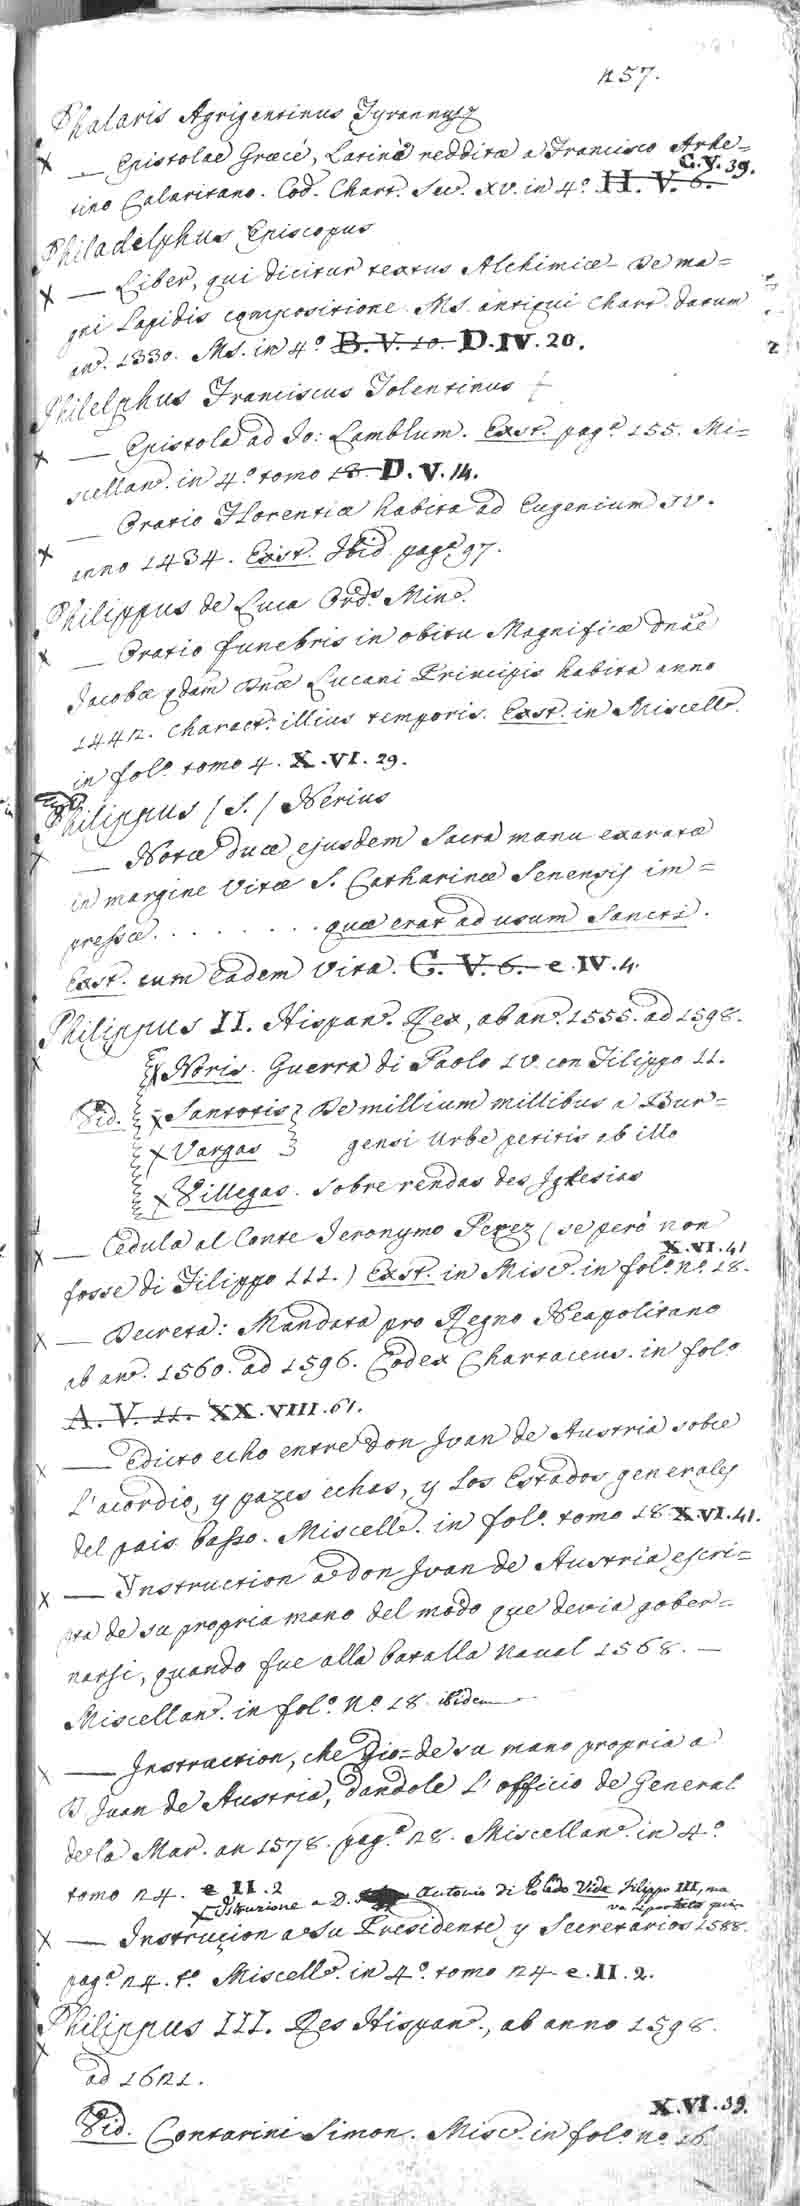 257.
Phalaris Agrigentinus Tyrannus
— Epistolae Græcè, Latinè redditæ a Francisco Arhe=
C.V. 39.
tino Calaritano. Cod. Chart. Sec. XV. in 4.o H. V. 6.
Philadelphus Episcopus
— Liber, qui dicitur textus Alchimiæ De ma=
gni Lapidis compositione. MS. antiqui Chart. datum
an. 1330. MS. in 4.o B. V. 10. D.IV.20.
Philelphus Franciscus Tolentinus
— Epistola ad Jo: Lamblum. Exst. pag.a 155. Mi=
scellan. in 4.o tomo 18. D.V.14.
— Oratio Florentiæ habita ad Eugenium IV.
anno 1434. Exst. Ibid. pag. 97.
Philippus de Luca Ord.s Min.
— Oratio funebris in obitu Magnificæ Dnæ
Jacobæ qdam Dnæ Lucani Principis habita anno
1442. Charact. illius temporis. Exst. in Miscell.
in fol.o tomo 4. X.VI.29.
Philippus (S.) Nerius
— Notæ duæ ejusdem Sacra manu exaratæ
in margine Vitæ S. Catharinæ Senensis im=
pressæ . . . . . . . . . quæ erat ad usum Sancti.
Exst. cum eadem Vita. C. V. 6. e.IV.4.
Philippus II. Hispan. Rex, ab an. 1555. ad 1598.
Noris. Guerra di Paolo IV. con Filippo II.
Vid. Santotis } De millium millibus a Bur=
Vargas } gensi Urbe petitis ab illo
Villegas. sobre rendas des Iglesias
— Cedula al Conte Jeronymo Perez (se però non
X.VI.41
fosse di Filippo III.) Exst. in Misc. in fol.o n.o 18.
— Decreta: Mandata pro Regno Neapolitano
ab an. 1560. ad 1596. Codex Chartaceus. in fol.o
A. V. 11. XX.VIII.61.
— Edicto echo entre don Juan de Austria sobre
L'acordio, y pazes echas, y los Estados generales
del pais basso. Miscell. in fol.o tomo 18 X.VI.41.
— Ynstruction a don Juan de Austria escri=
pta de su propria mano del modo que devia gober=
narsi, quando fue alla batalla naval 1568. —
Miscellan. in fol.o N.o 18. ibidem
— Instruction, che dio de su mano propria a
D. Juan de Austria, dandole L'officio de General
de la Mar. an 1578. pag.a 28. Miscellan. in 4.o
tomo 24. e II.2
Istruzione a D. Antonio di Toledo Vide Filippo III, ma
va riportata qui
— Instruçion a su Presidente y Secretarios 1588.
pag.a 24. t.o Miscell. in 4.o tomo 24. e.II.2.
Philippus III. Res Hispan., ab anno 1598.
ad 1621.
X.VI.39.
Vid. Contarini Simon. Misc. in fol.o n.o 16.